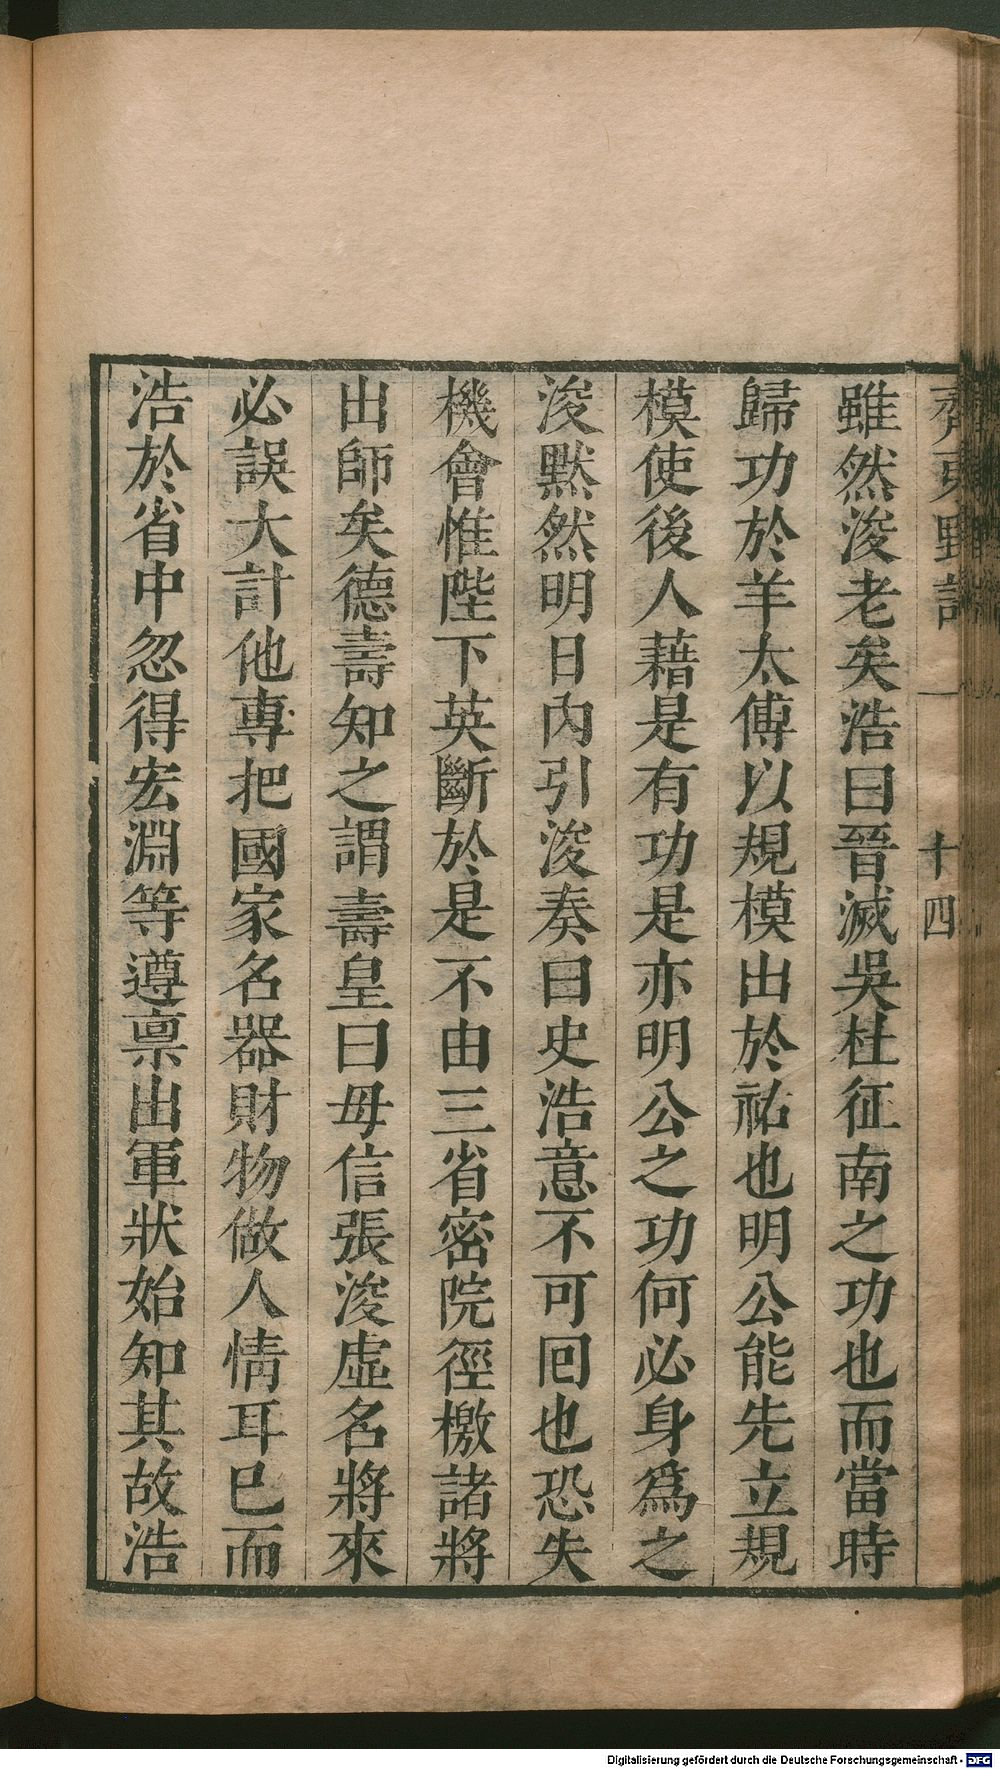 雖然浚老矣浩曰晉滅吳杜征南之功也而當時
歸功於羊太傅以規模出於祐也明公能先立規
模使後人藉是有功是亦明公之功何必身爲之
浚默然明日內引浚奏曰史浩意不可囘也恐失
機會惟陛下英斷於是不由三省密院徑檄諸將
出師矣德壽知之謂壽皇曰毋信張浚虛名將來
必誤大計他專把國家名器財物做人情耳已而
浩於省中忽得宏淵等遵禀出軍狀始知其故浩
齊東野語 一 十四
Digitalisierung gefördert durch die Deutsche Forschungsgemeinschaft - DFG